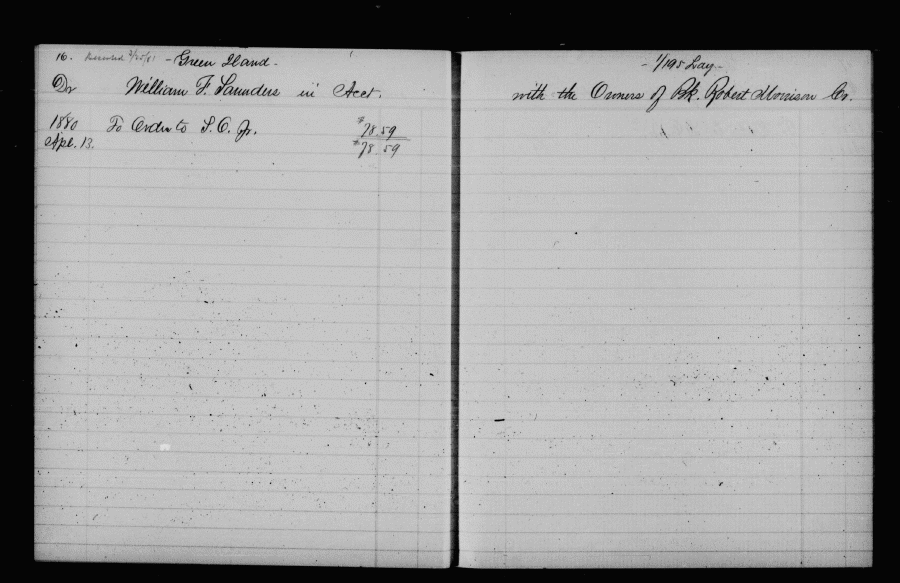 16. Deserted 3/25/81 - Green Hand -
Dr William F. Saunders in Acct.
1880 To Order to S. C. Jr. $78.59
Apl. 13. $78.59
- 1/195 Lay -
with the Owners of Bk. Robert Morrison Cr.